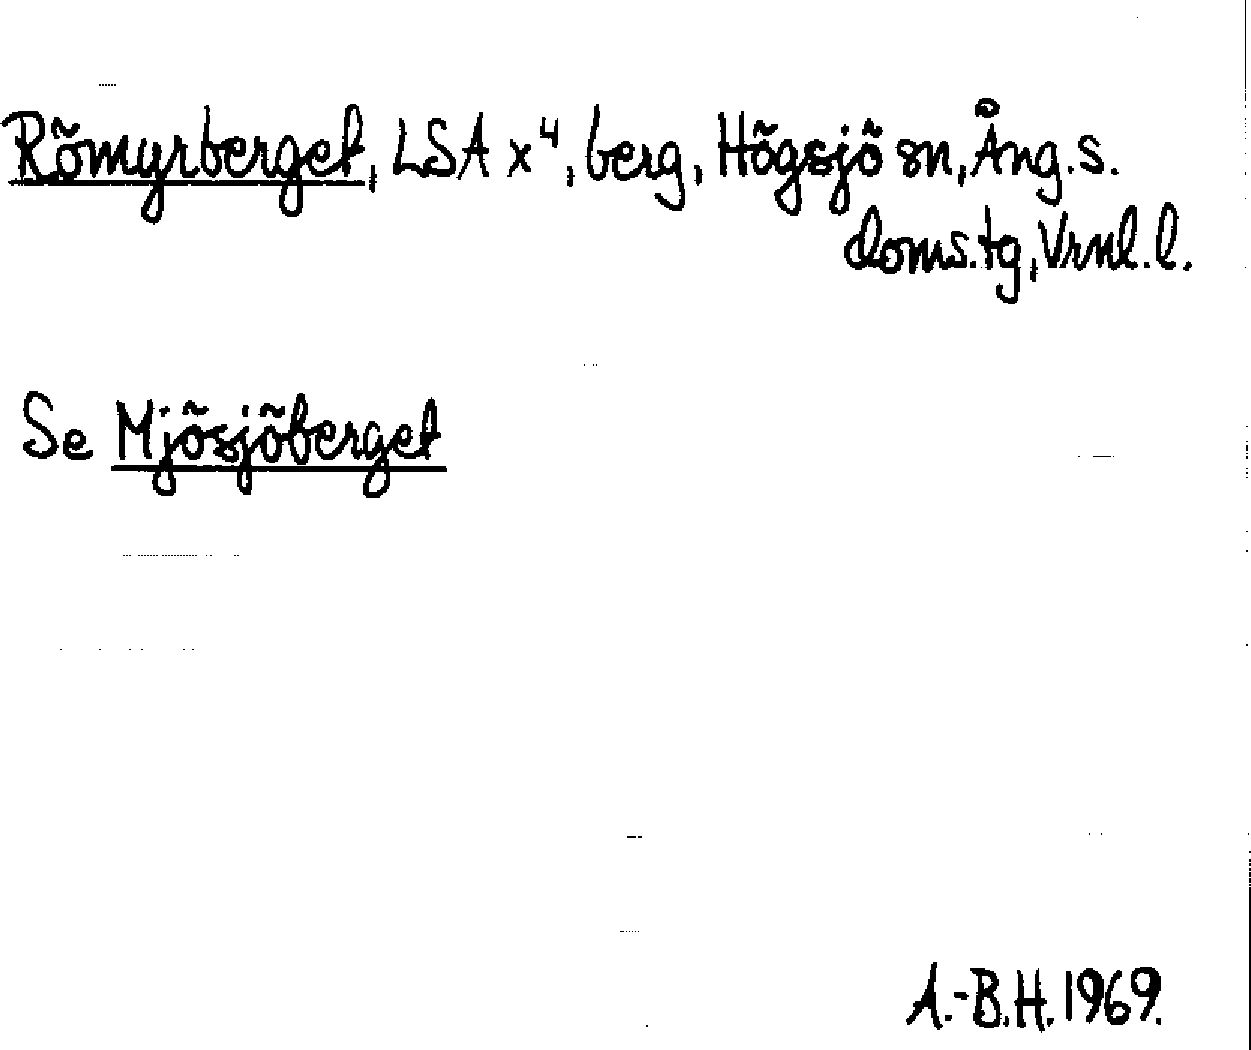 Römyrberget, LSA x⁴, berg, Högsjö sn, Ång. s.
doms.tg, Vrnl. l.
Se Mjösjöberget
A.-B.H. 1969.